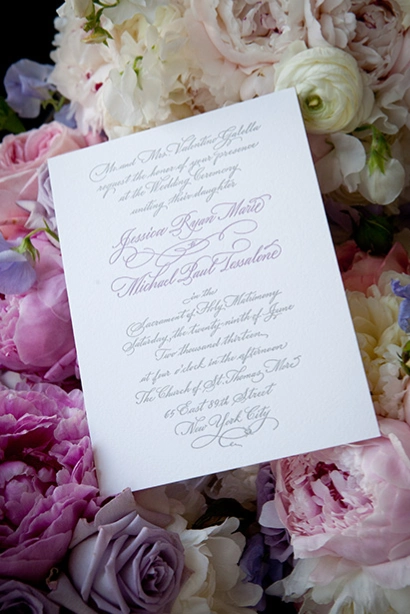 Mr. and Mrs. Valentino Galella
request the honor of your presence
at the Wedding Ceremony
uniting their daughter
Jessica Ryan Marie
Michael Paul Tessalone
in the
Sacrament of Holy Matrimony
Saturday, the twenty-ninth of June
Two thousand thirteen
at four o'clock in the afternoon
The Church of St. Thomas More
65 East 89th Street
New York City